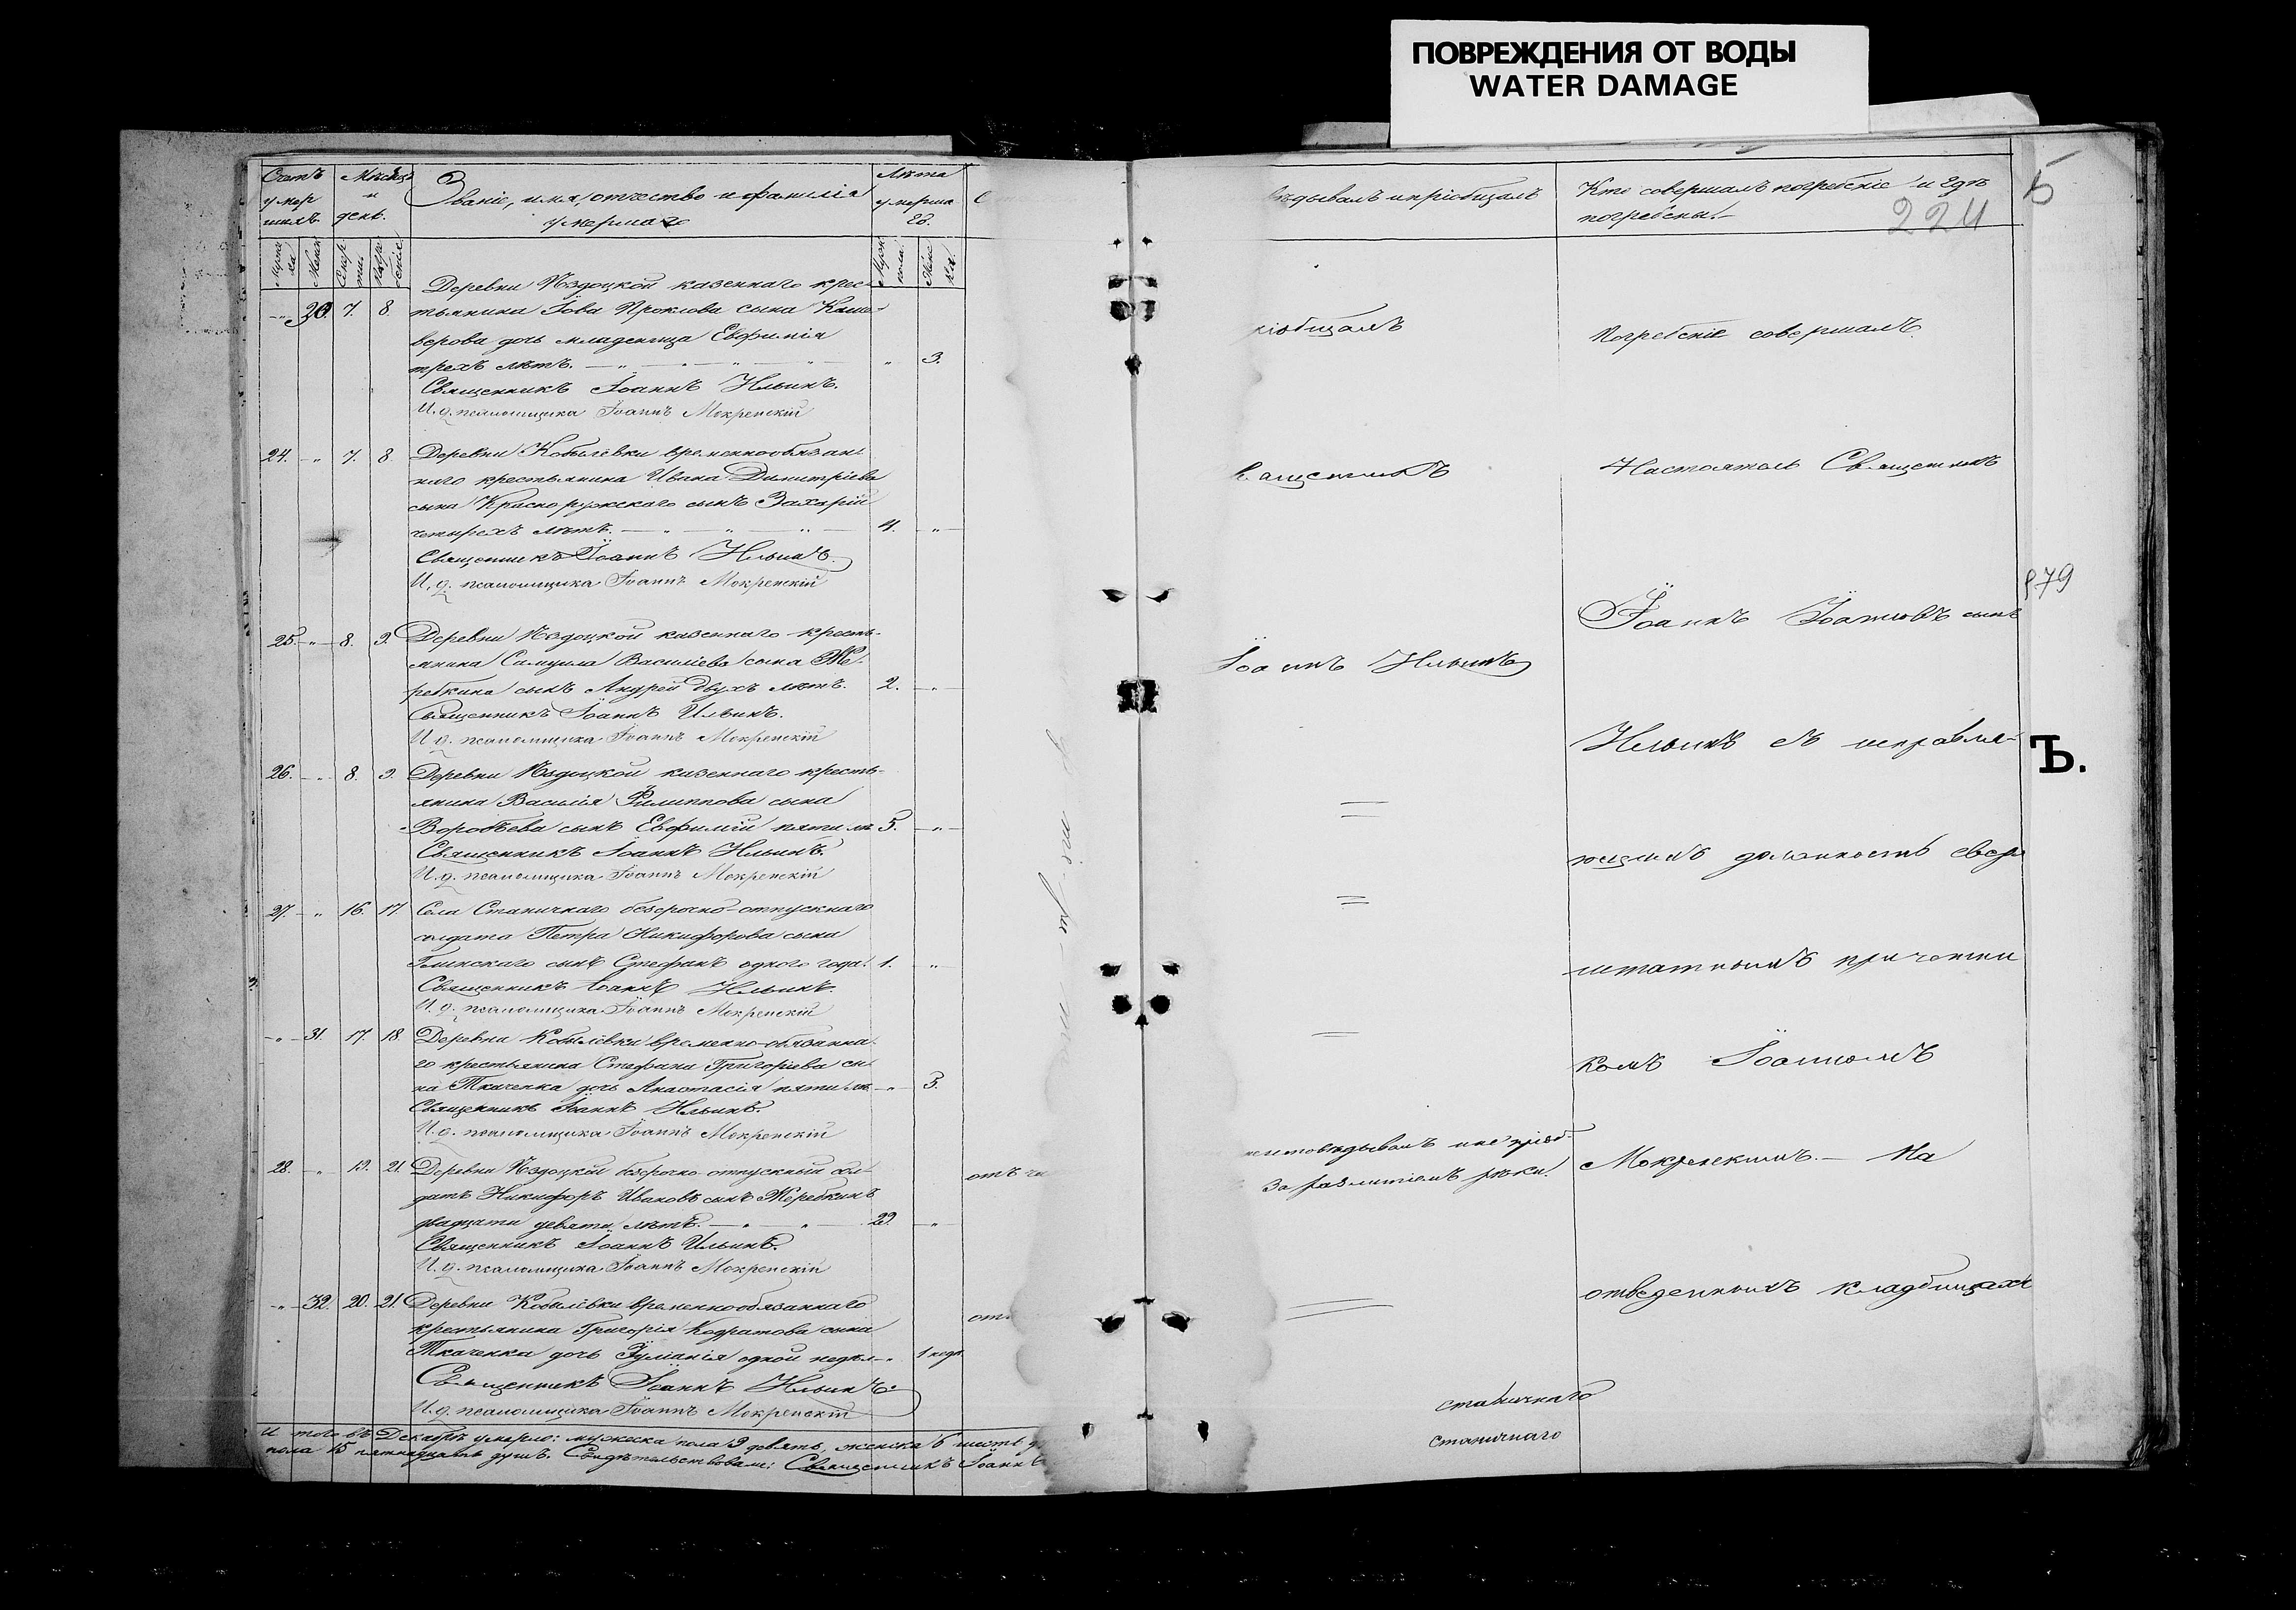 ПОВРЕЖДЕНИЯ ОТ ВОДЫ
WATER DAMAGE
Счетъ умершихъ.
Мѣсяцъ и день.
Званіе, имя, отчество и фамилія
умершаго
Лѣта умершаго.
30. 7. 8.
Деревни казеннаго крес-
тьянина Іова Проклова сына
верова дочь младенца Евфимія
трехъ лѣтъ. 3.
Священникъ Іоаннъ Ильинъ.
И. д. псаломщика Іоаннъ Мокренскій
24. 7. 8.
Деревни Кобылевки временнообязан-
наго крестьянина Ивана Димитріева
сына Красноружскаго сынъ Захарій
четырехъ лѣтъ. 4.
Священникъ Іоаннъ Ильинъ.
И. д. псаломщика Іоаннъ Мокренскій
25. 8. 9.
Деревни казеннаго кресть-
янина Самуила Василіева сына Же-
ребкина сынъ Андрей двухъ лѣтъ. 2.
Священникъ Іоаннъ Ильинъ.
И. д. псаломщика Іоаннъ Мокренскій
26. 8. 9.
Деревни казеннаго кресть-
янина Василія Филиппова сына
Воробьева сынъ Евфимій пяти лѣ 5.
Священникъ Іоаннъ Ильинъ.
И. д. псаломщика Іоаннъ Мокренскій
27. 16. 17
Села Станичнаго безсрочно-отпускнаго
солдата Петра Никифорова сына
Глинскаго сынъ Стефанъ одного года. 1.
Священникъ Іоаннъ Ильинъ.
И. д. псаломщика Іоаннъ Мокренскій
31. 17. 18.
Деревни Кобылевки временно-обязанна-
го крестьянина Стефана Григоріева сы-
на Ткаченка дочь Анастасія пяти лѣ 5.
Священникъ Іоаннъ Ильинъ.
И. д. псаломщика Іоаннъ Мокренскій
28. 19. 21.
Деревни безсрочно отпускный сол-
датъ Никифоръ Ивановъ сынъ Жеребкинъ
двадцати девяти лѣтъ. 29.
Священникъ Іоаннъ Ильинъ.
И. д. псаломщика Іоаннъ Мокренскій
32. 20. 21.
Деревни Кобылевки временнообязаннаго
крестьянина Григорія Кодратова сына
Ткаченка дочь Іуліанія одной недѣл 1 недѣ.
Священникъ Іоаннъ Ильинъ.
И. д. псаломщика Іоаннъ Мокренскій
И того въ Декабрѣ умерло: мужеска пола 9 девять, женска 6 шесть
пола 15 пятнадцать душъ. Свидѣтельствовали: Священникъ Іоаннъ
отъ
ѣдывалъ и пріобщалъ
Кто совершалъ погребеніе и гдѣ
погребены.
224
ріобщалъ
Іоаннъ Ильинъ
исповѣдывалъ и не пріоб-
за разлитіемъ рѣки.
Погребеніе совершалъ
Настоятель Священникъ
Іоаннъ Іоанновъ сынъ
Ильинъ съ исправля-
ющимъ должность сверх
штатнымъ причетни
комъ Іоанномъ
Мокренскимъ. — На
отведенныхъ кладбищахъ
станичнаго
станичнаго
Ъ.